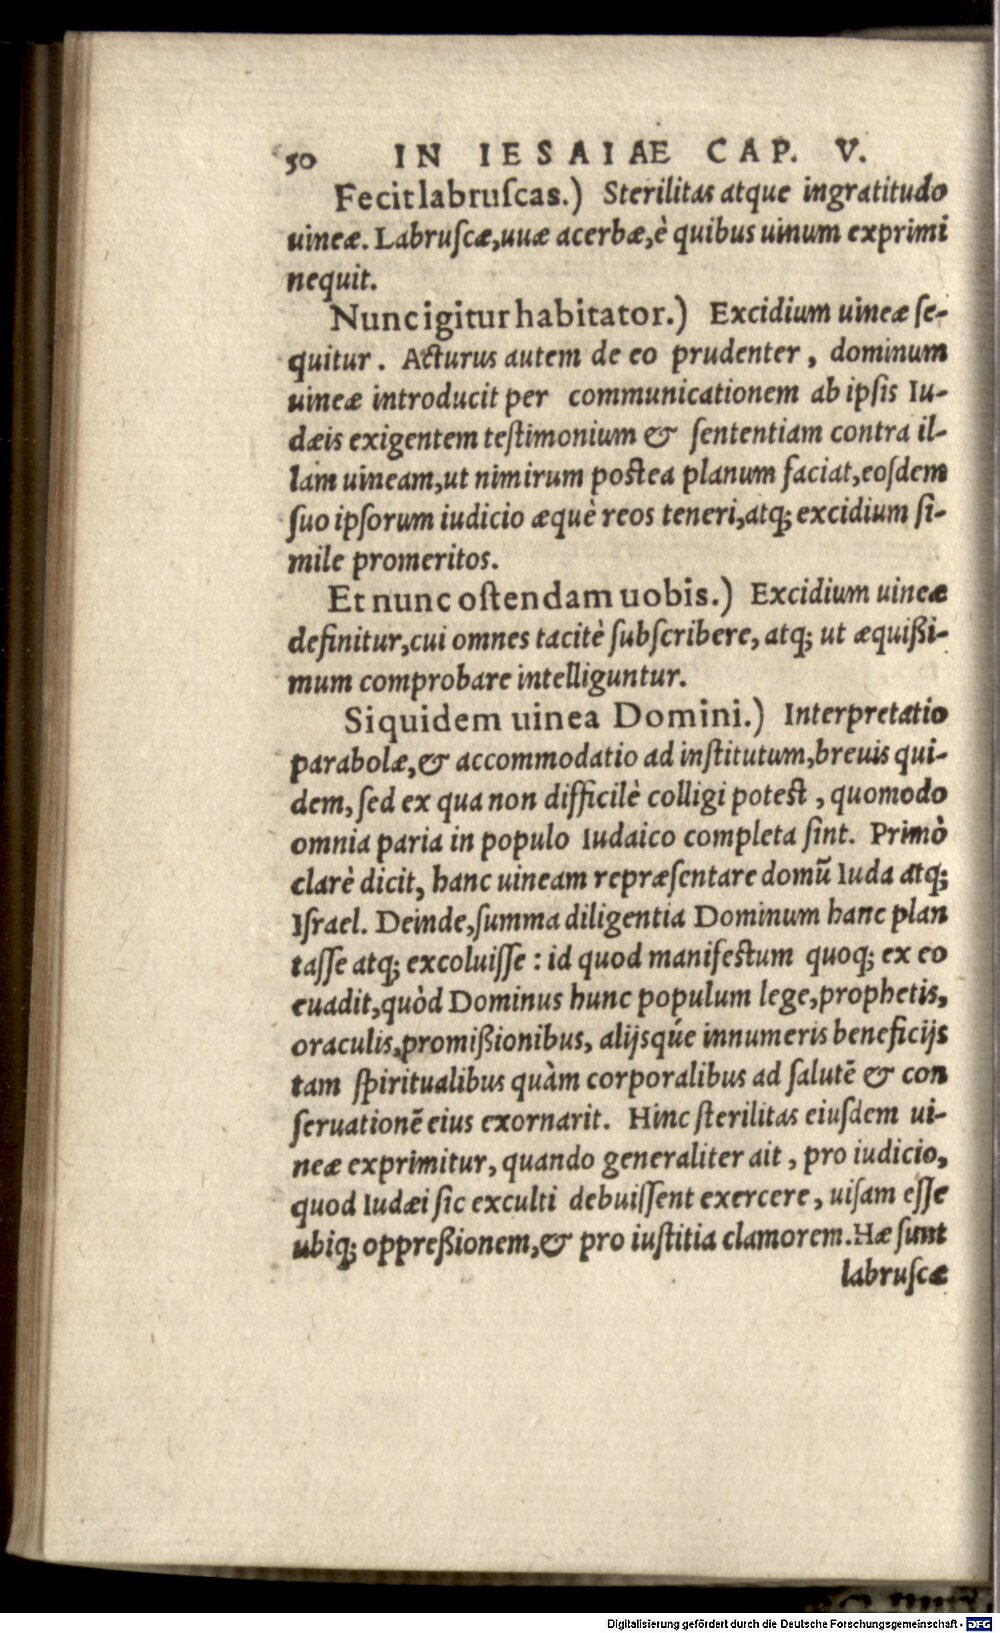 50 IN IESAIAE CAP. V.
Fecit labruſcas.) Sterilitas atque ingratitudo
uineæ. Labruſcæ, uuæ acerbæ, è quibus uinum exprimi
nequit.
Nunc igitur habitator.) Excidium uineæ ſe-
quitur. Acturus autem de eo prudenter, dominum
uineæ introducit per communicationem ab ipſis Iu-
dæis exigentem teſtimonium & ſententiam contra il-
lam uineam, ut nimirum postea planum faciat, eoſdem
ſuo ipſorum iudicio æquè reos teneri, atq; excidium ſi-
mile promeritos.
Et nunc oſtendam uobis.) Excidium uineæ
definitur, cui omnes tacitè ſubſcribere, atq; ut æquißi-
mum comprobare intelliguntur.
Siquidem uinea Domini.) Interpretatio
parabolæ, & accommodatio ad inſtitutum, breuis qui-
dem, ſed ex qua non difficilè colligi potest, quomodo
omnia paria in populo Iudaico completa ſint. Primò
clarè dicit, hanc uineam repræſentare domũ Iuda atq;
Iſrael. Deinde, ſumma diligentia Dominum hanc plan
taſſe atq; excoluiſſe: id quod manifestum quoq; ex eo
euadit, quòd Dominus hunc populum lege, prophetis,
oraculis, promißionibus, alijsqúe innumeris beneficijs
tam ſpiritualibus quàm corporalibus ad ſalutē & con
ſeruationē eius exornarit. Hinc ſterilitas eiuſdem ui-
neæ exprimitur, quando generaliter ait, pro iudicio,
quod Iudæi ſic exculti debuiſſent exercere, uiſam eſſe
ubiq; oppreßionem, & pro iuſtitia clamorem. Hæ ſunt
labruſcæ
Digitalisierung gefördert durch die Deutsche Forschungsgemeinschaft - DFG